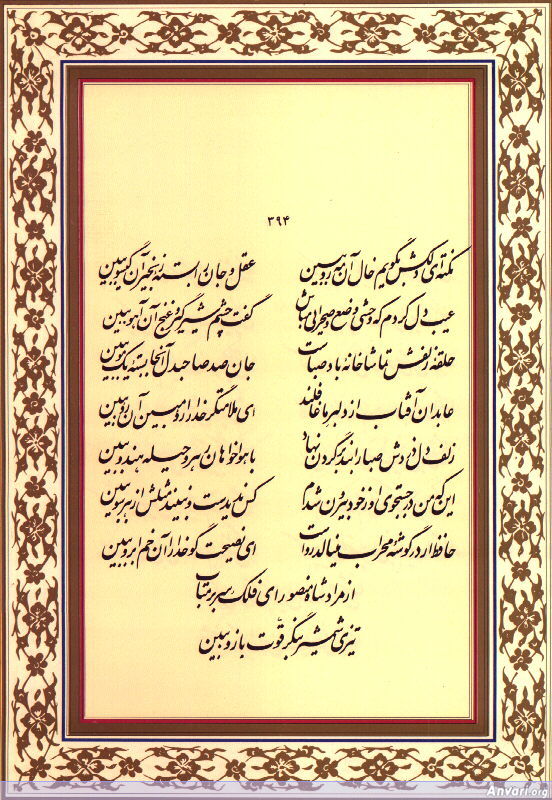 ۳۹۴
نکته‌ی دلکش بگویم خال آن مه رو ببین عقل و جان را بسته زنجیر آن گیسو ببین
عیب دل کردم که وحشی وضع و صحرایی مباش گفت چشم شیرگیر و غنج آن آهو ببین
حلقه زلفش تماشاخانه باد صباست جان صد صاحبدل آنجا بسته یک مو ببین
عابدان آفتاب از دلبر ما غافلند ای ملامتگر خدا را رو مبین آن رو ببین
زلف دل دزدش صبا را بند بر گردن نهاد با هواخواهان رهرو حیله هندو ببین
این که من در جستجوی او ز خود بیرون شدم کس ندیدست و نبیند مثلش از هر سو ببین
حافظ ار در گوشه محراب مینالد رواست ای نصیحت گو خدا را آن خم ابرو ببین
از مراد شاه منصور ای فلک سر بر متاب
تیزی شمشیر بنگر قوت بازو ببین
Anvari.org